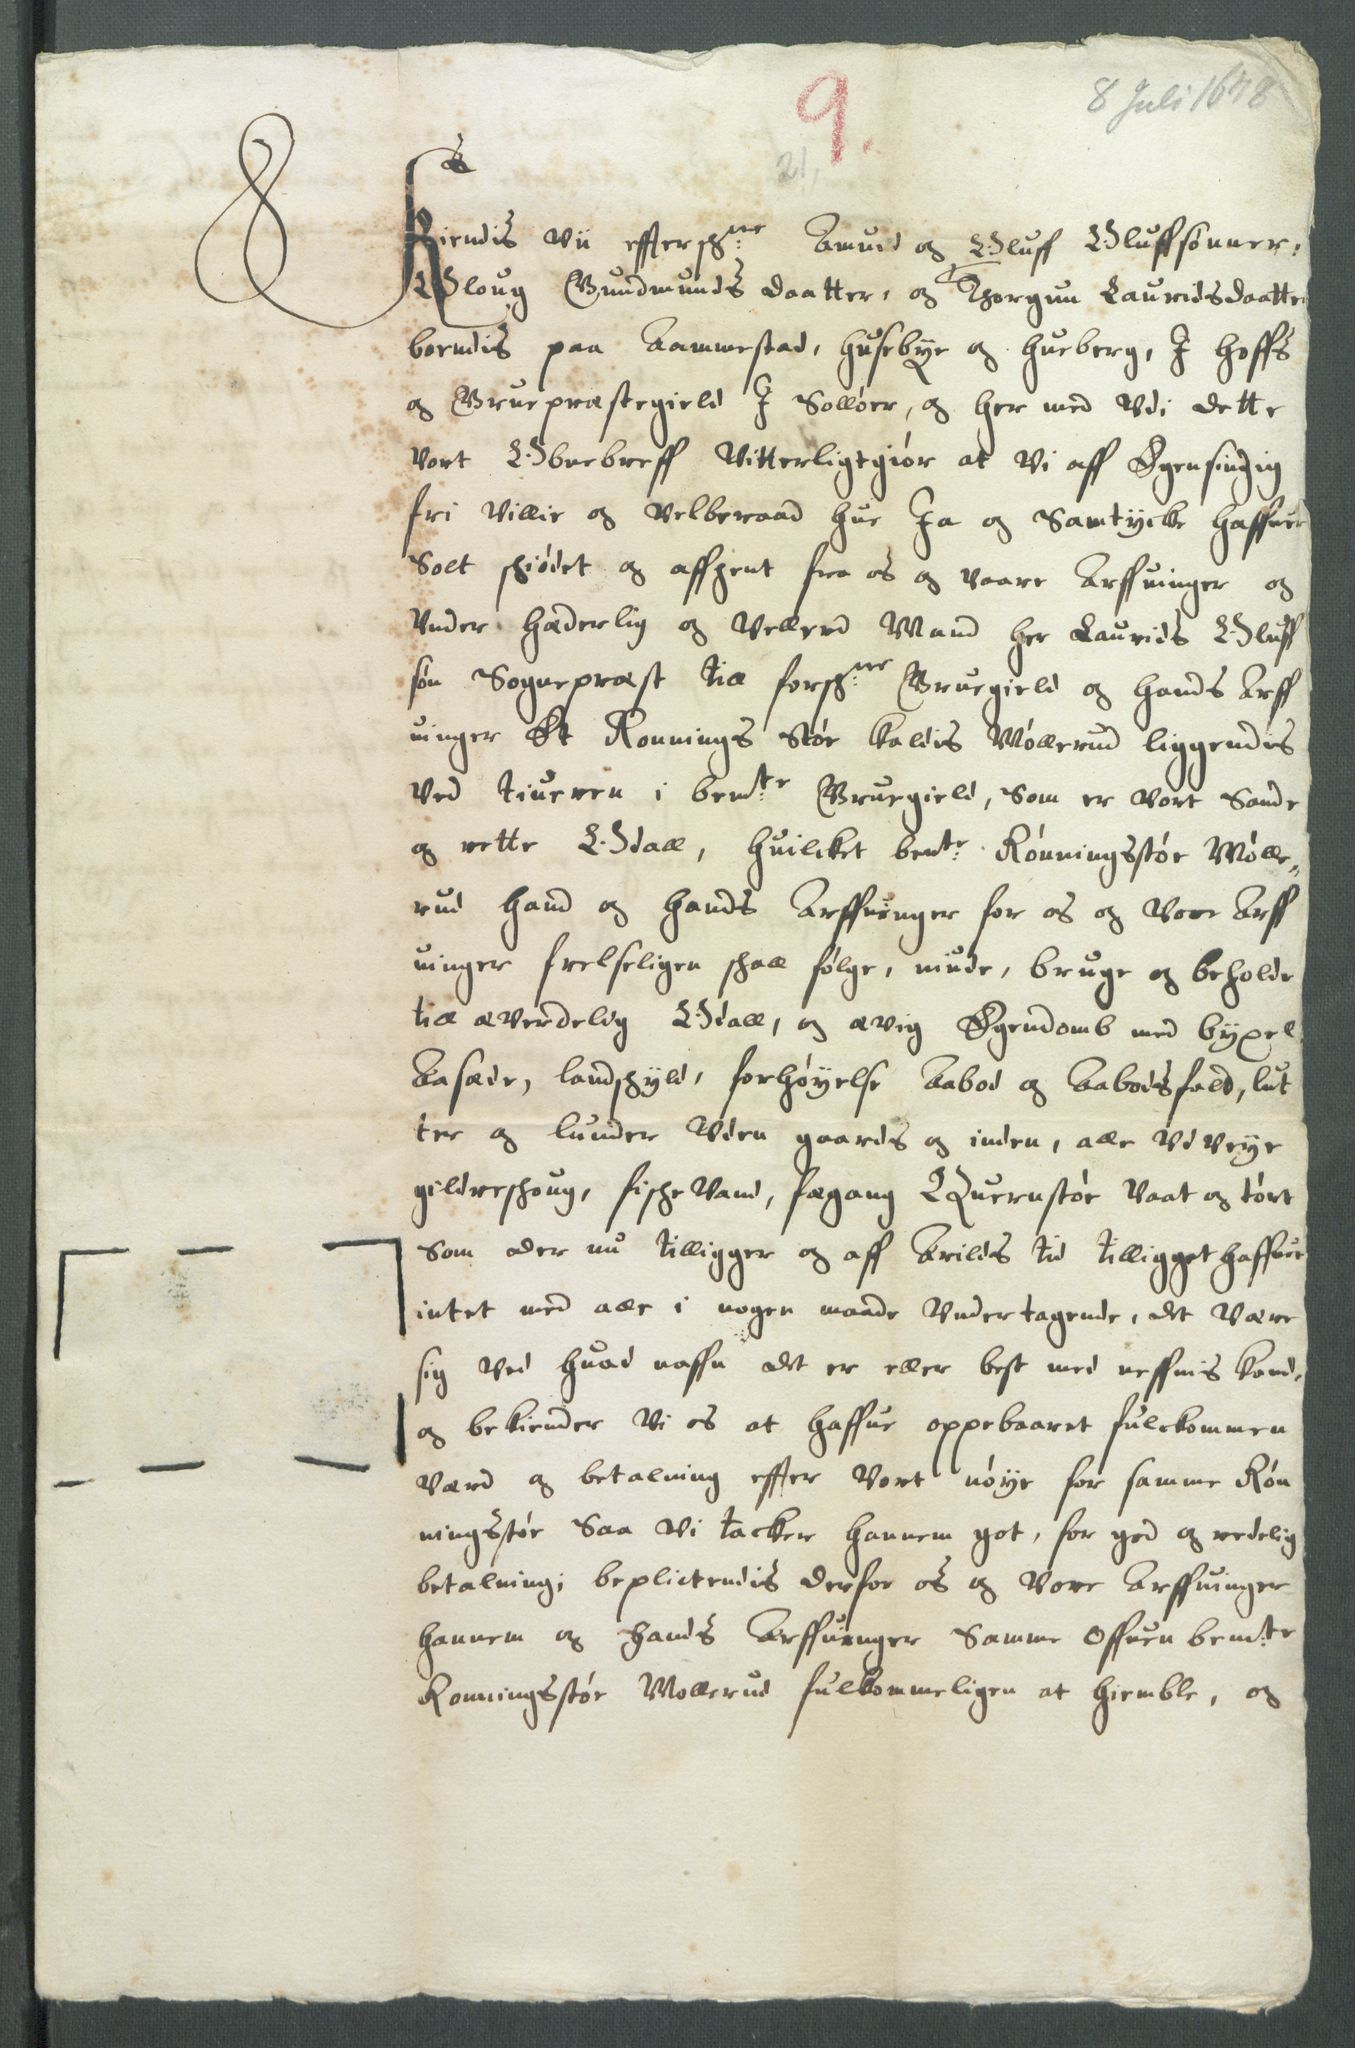 8 Juli 1648
9.
21,
Kiendis Vii effterschne Amund og Oluff Oluffsønner,
Oloug Gundmunds daatter, og Thorgun Lauridsdaatter
boendis paa Aammestad, Husebye og Hueberg, I Hoffs
og Gruepræstegield I Solløer, og her med Vdi dette
vort Obnebreff Vitterligtgiør at Vi aff Egensindig
fri Villie og Velberaad hue Ja og Samtycke haffuer
Solt skiødet og affhent fra os og vaare Arffuinger og
Vnder hæderlig og Vellerd Mand Her Laurids Oluff
søn Sognepræst till forschne Gruegield og hands Arff
uinger Et Ronnings Støe kaldis Møllerud liggendis
Ved tiueren i bemte Gruegield, Som er Vort Sande
og rette Odall, huilcket bemte Rønningsstøe Mølle„
rud hand og hands Arffuinger for os og Vore Arff
uinger frelseligen skall følge, niude, bruge og beholde
till æverdelig Odall, og ævig Egendomb med byxel
Aasæde, landskyld, forhøyelse Aabod og Aabodsfald, lut
ter og lunder Vden gaards og inden, alle Vdveye
gildreskoug, fiskeVand, fægang Quernstøe Vaat og tørt
Som der nu tilligger og aff Arilds tid tilligget haffuer
intet med alle i nogen maade Vndertagende, det Være
sig Ved huad naffn det er eller best med neffnis kand,
og bekiender Vi os at haffue oppebaaret fulekommen
Værd og betalning effter Vort nøye for samme Røn
ningsstøe Saa Vi tacker hannem got, for god og redelig
betalning, beplictendis derfor os og Vore Arffuinger
hannem og hands Arffuinger Samme offuenbemte
Ronningsstøe Mollerud fulkommeligen at hiemble, og